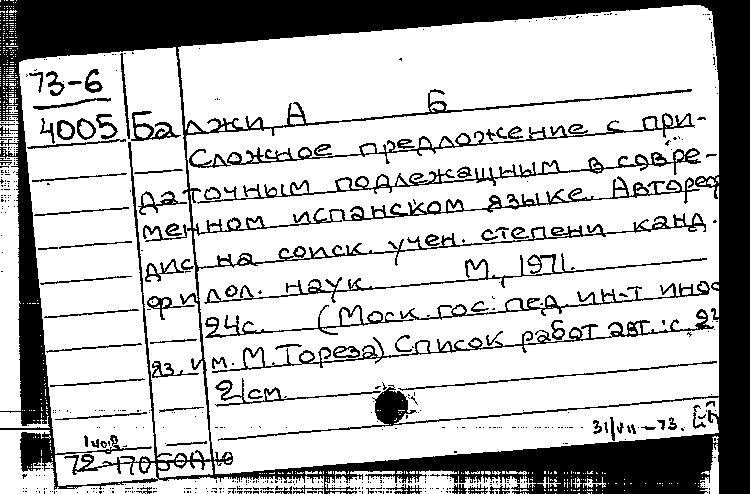 73-6
4005 Балжи, А Б
Сложное предложение с при-
даточным подлежащным в совре-
менном испанском языке. Автореф
дис. на соиск. учен. степени канд.
филол. наук. М., 1971.
24с. (Моск. гос. пед. ин-т инос
яз. им. М. Тореза) Список работ авт.: с. 24
21см
31/VII-73.
72-17050А